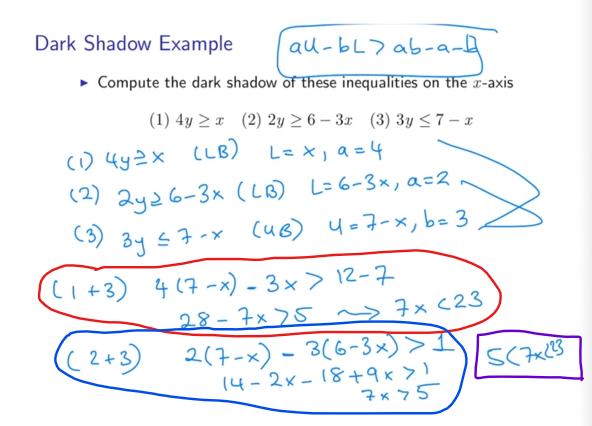 Dark Shadow Example
aU-bL>ab-a-b
▸ Compute the dark shadow of these inequalities on the x-axis
(1) 4y ≥ x (2) 2y ≥ 6 − 3x (3) 3y ≤ 7 − x
(1) 4y≥x (LB) L=x, a=4
(2) 2y≥6-3x (LB) L=6-3x, a=2
(3) 3y≤7-x (UB) U=7-x, b=3
(1+3) 4(7-x)-3x > 12-7
28-7x>5 ⇝ 7x<23
(2+3) 2(7-x) - 3(6-3x) > 1
14-2x-18+9x>1
7x>5
5<7x<23